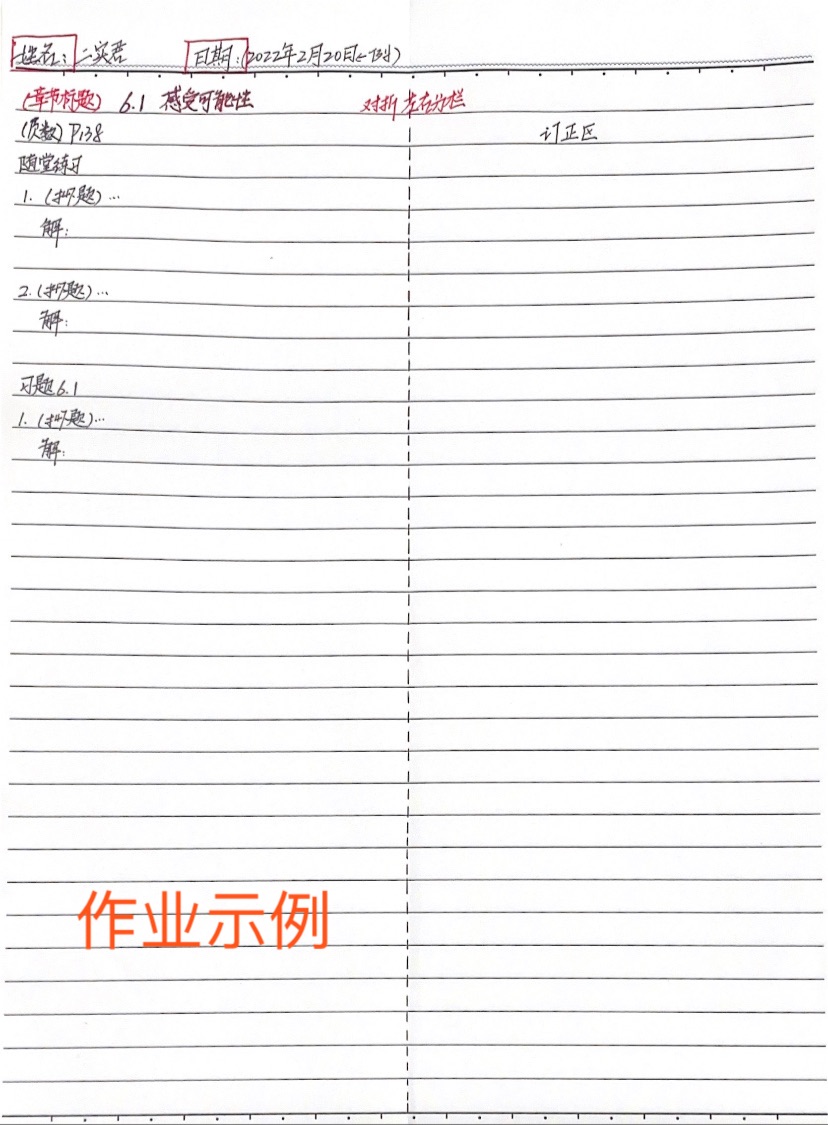 姓名：二实君 日期：(2022年2月20日
(章节标题) 6.1 感受可能性 对折 左右分栏
(页数) P138 订正区
随堂练习
1. (抄题)…
解：
2. (抄题)…
解：
习题6.1
1. (抄题)…
解：
作业示例